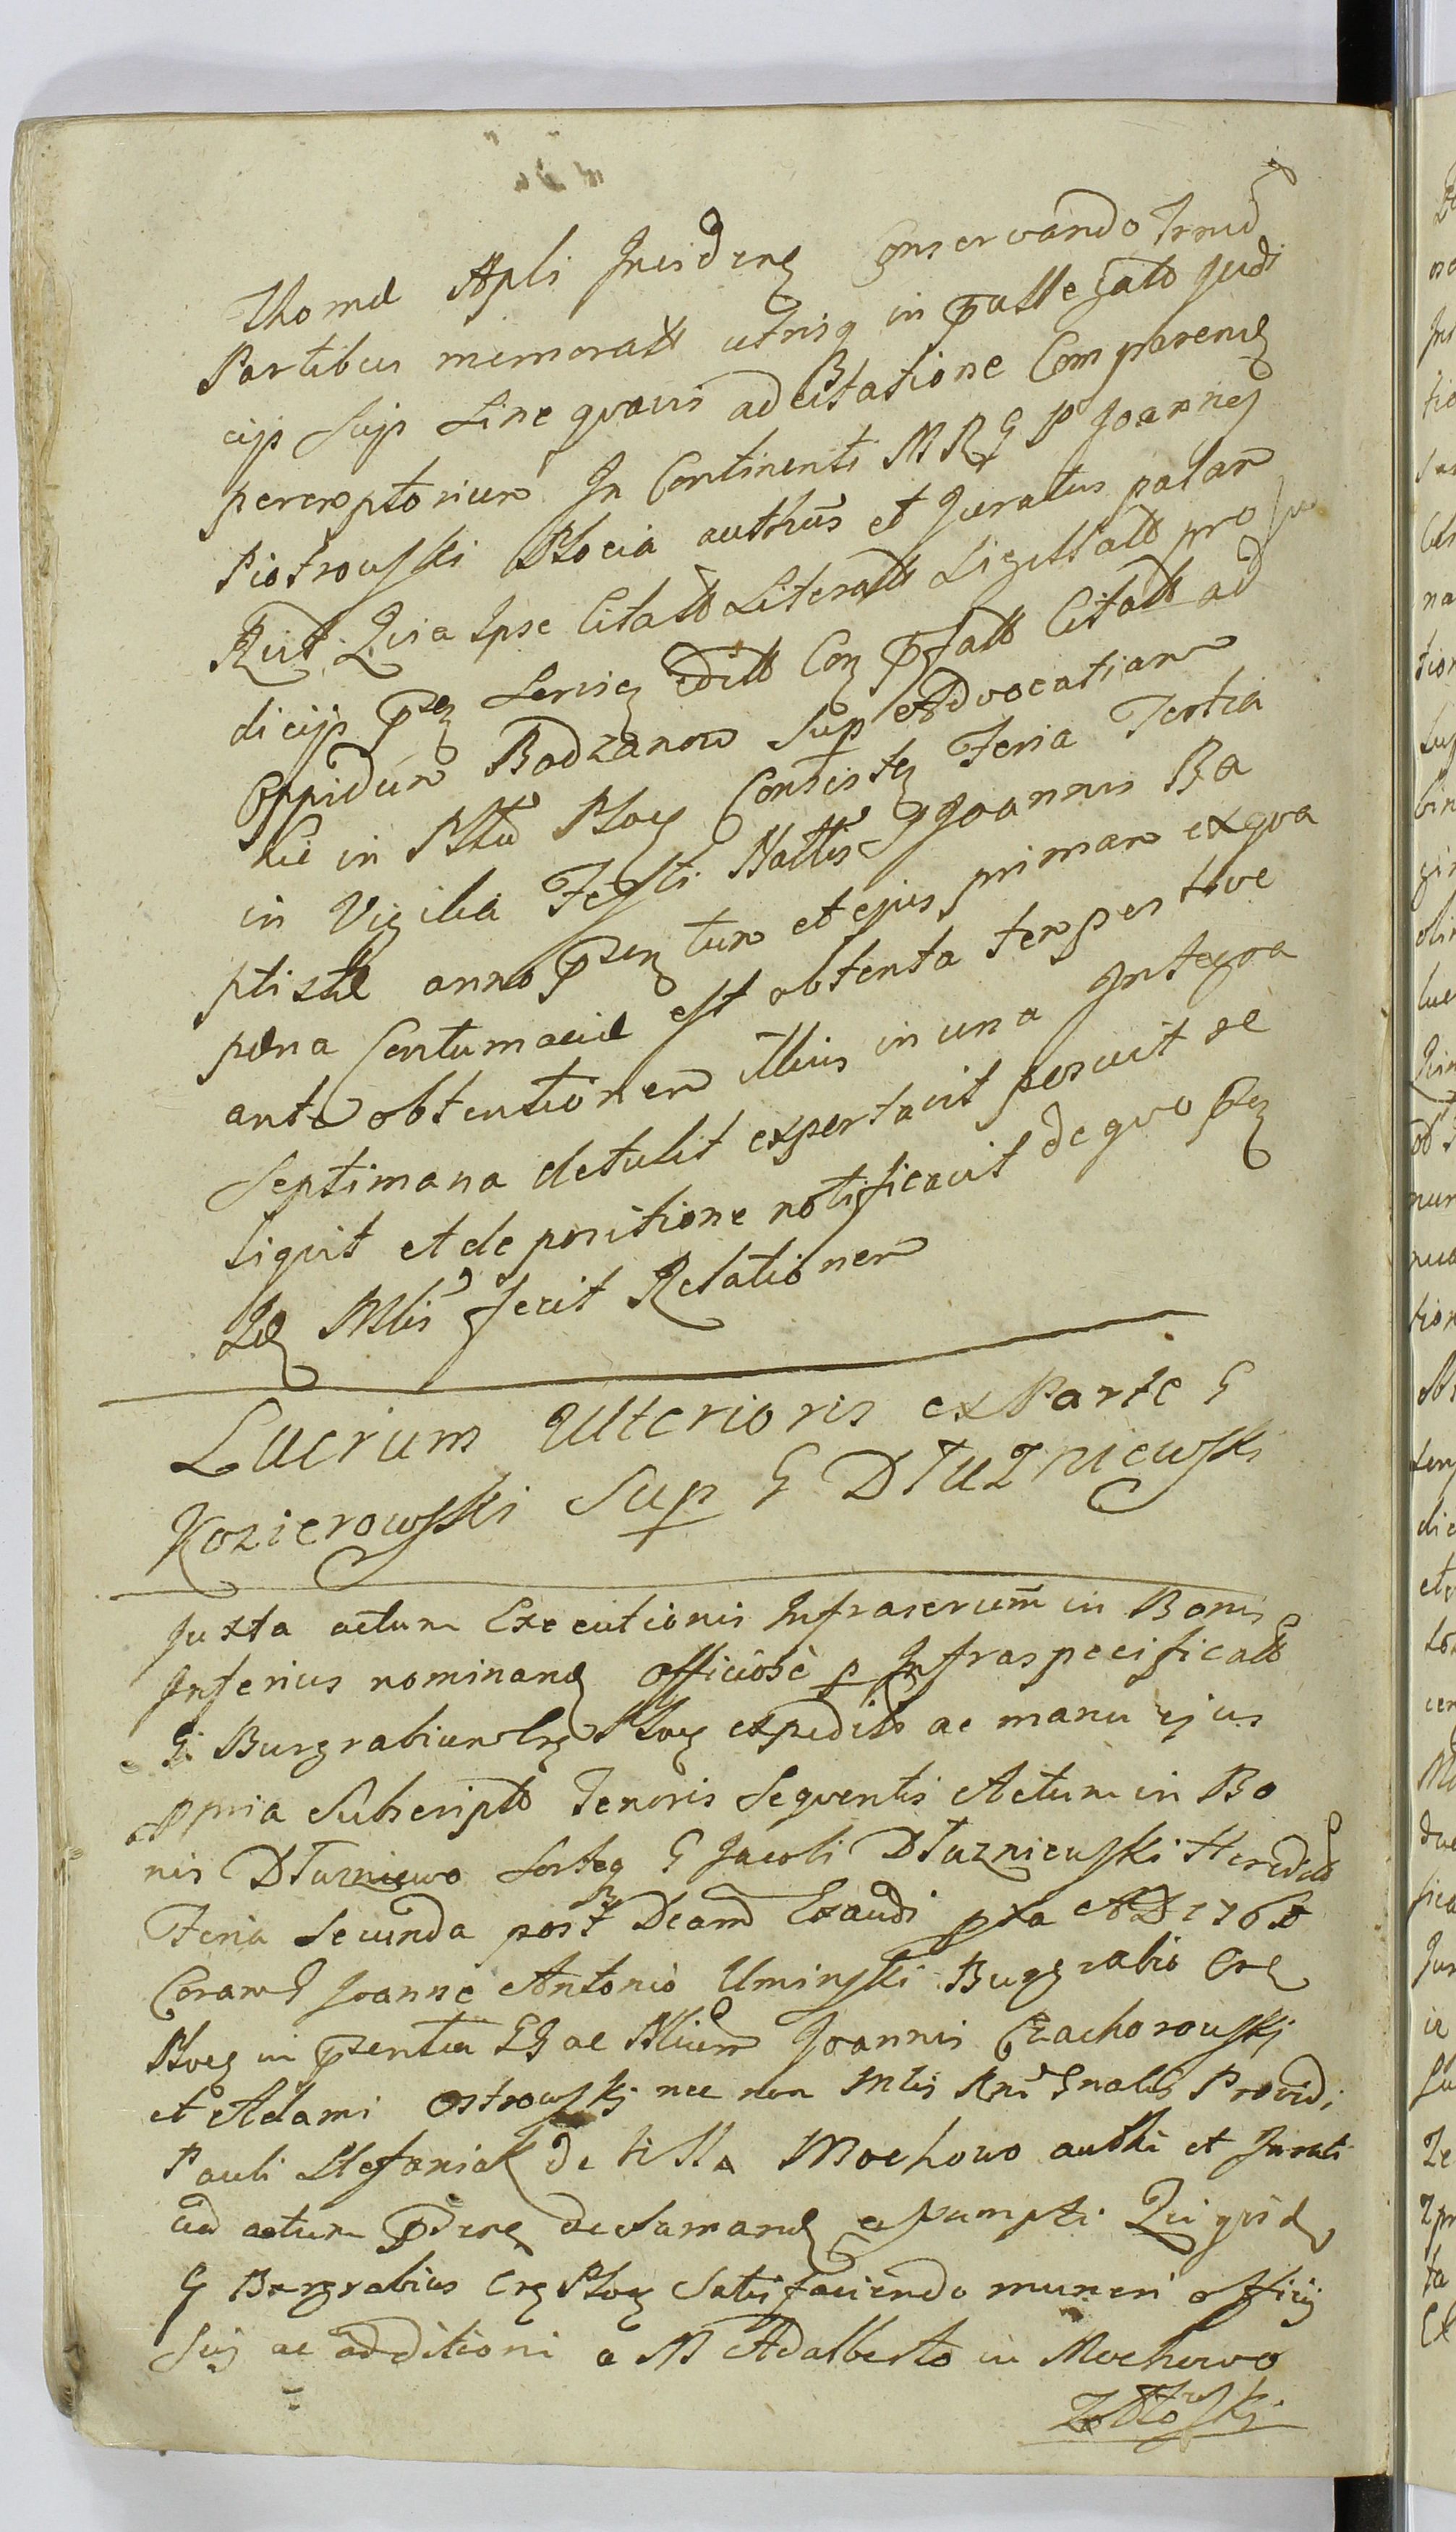 Thomæ Apli Inciden Conservando Trmd
Partibus memoratt utrisq in pallegato Judi
cijs suis sine quavis adcitatione Comparend
peremptorium In Continenti M R G P Joannes
Piotrowski Plocia authus et Juratus palam
Rcit Quia Ipse Citatt Literatt Sigillatt pro
dicijs pn servien editt Con pfatt Citatt ad
Oppidum Bodzanow sup Advocatiam
hic in Plttu Ploc Consisten Feria Tertia
in Vigilia Festi Nattis S Joannis Ba
ptistæ anno pnzen tum et ejus primam exqva
pæna Contumaciæ est obtenta tempestive
ante obtentionem illius in una Integra
Septimana detulit exportavit posuit re
liqvit et de positione notificavit de qvo pn
Id Mlis fecit Relationem
Lucrum Ulterioris ex Parte G
Kozierowski Sup G Dłużniewski
Juxta actum Executionis Infrascrium in Bonis
Inferius nominand officiose p Infraspecificatt
G Burgrabium Crn Ploc expeditt ac manu ejus
ppria Subscriptt Tenoris Seqventis Actum in Bo
nis Dłuzniewo Sorten G Jacobi Dłuzniewski Hereditt
Feria Secunda post Dcam Exaudi pxa AD 176
Coram G Joanne Antonio Uminski Burgrabio Crn
Ploc in pzentia GG ac Nlium Joannis Czachorowski
et Adami Ostrowski nec non Mlis Rni Gnalis Providi
Pauli Stefaniak de Villa Mochowo authi et Jurati
ad actum pden declarand assumpti Qui quid
G Burgrabius Crn Ploc Satisfaciendo muneri officij
Sui ac additioni a M Adalberto in Mochowo